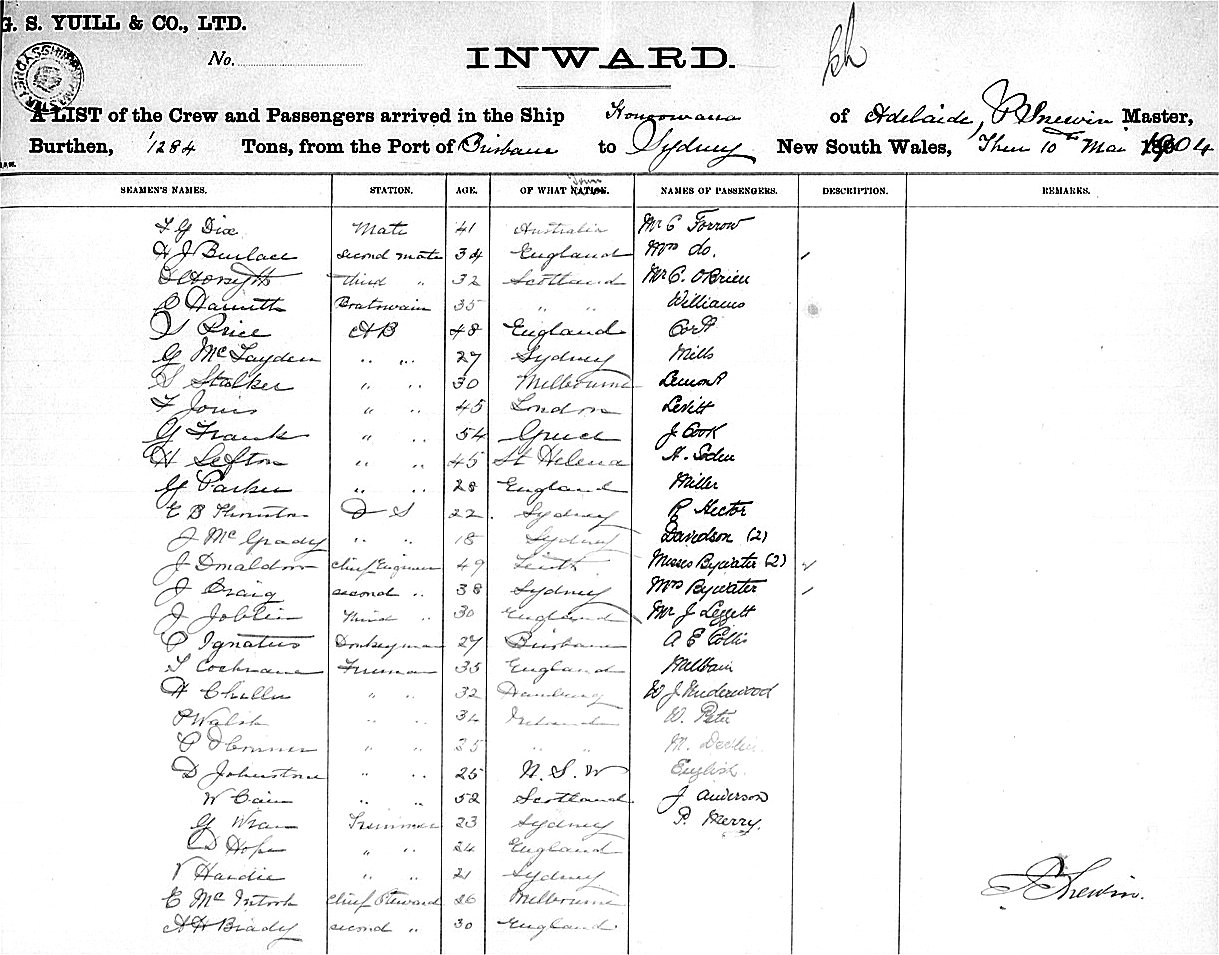 G. S. YUILL & CO., LTD.
No.
INWARD.
A LIST of the Crew and Passengers arrived in the Ship Konoowarra of Adelaide, Master,
Burthen, 1284 Tons, from the Port of Brisbane to Sydney New South Wales, 10th Mar 1904
SEAMEN'S NAMES. STATION. AGE. OF WHAT NATION. Town NAMES OF PASSENGERS. DESCRIPTION. REMARKS.
F G Dix Mate 41 Australia Mr C Forrow
H J Burlace second mate 34 England Mrs do.
third " 32 Scotland Mr C. O'Brien
Boatswain 35 " " Williams
S Price AB 48 England
G McFayden " " 27 Sydney Mills
S Stalker " " 30 Melbourne Lemont
F Jones " " 45 London Levitt
G Frank " " 54 Greece J Cook
H Sefton " " 45 St Helena H. Soden
G Parker " " 28 England Miller
E B Thornton O S 22 Sydney P Hector
J McGrady " " 18 Sydney Davidson (2)
J Donaldson chief Engineer 49 Leith Misses Bywater (2)
J Craig second " 38 Sydney Mrs Bywater
J Joblin third " 30 England Mr J Leggett
P Ignatius Donkeyman 27 Brisbane A E Collis
S Cochrane Fireman 35 England
H " " 32 Hamburg W J Underwood
P Walsh " " 34 Ireland
P O'Connor " " 25 " " M. Devlin
D Johnstone " " 25 N. S. W English
W Cain " " 52 Scotland J Anderson
G Wran Trimmer 23 Sydney P. Merry.
D Hope " " 24 England
V Hardie " " 21 Sydney
E McIntosh chief Steward 26 Melbourne
A H Brady second " 30 England